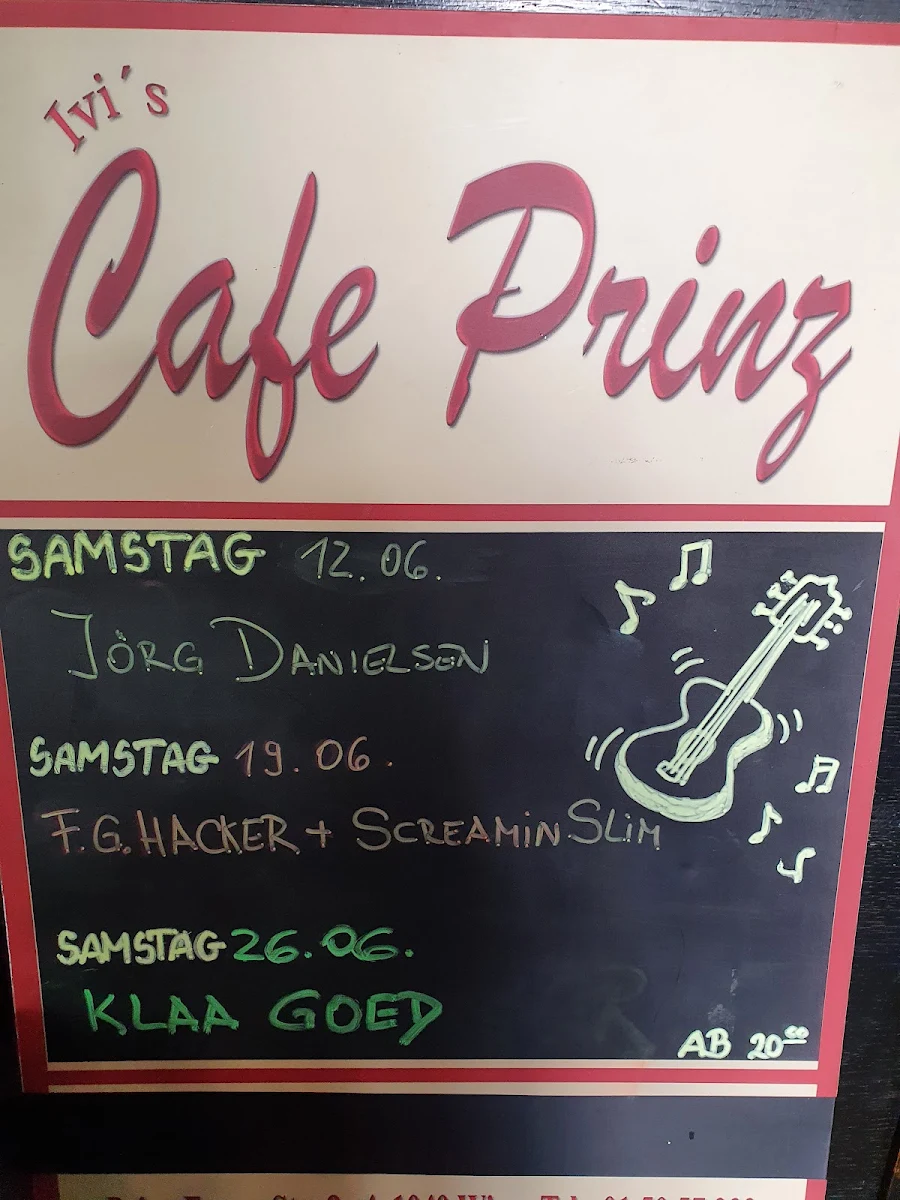 Ivi´s
Cafe Prinz
SAMSTAG 12.06.
JÖRG DANIELSEN
SAMSTAG 19.06.
F.G. HACKER + SCREAMIN SLIM
SAMSTAG 26.06.
KLAA GOED
AB 20⁰⁰